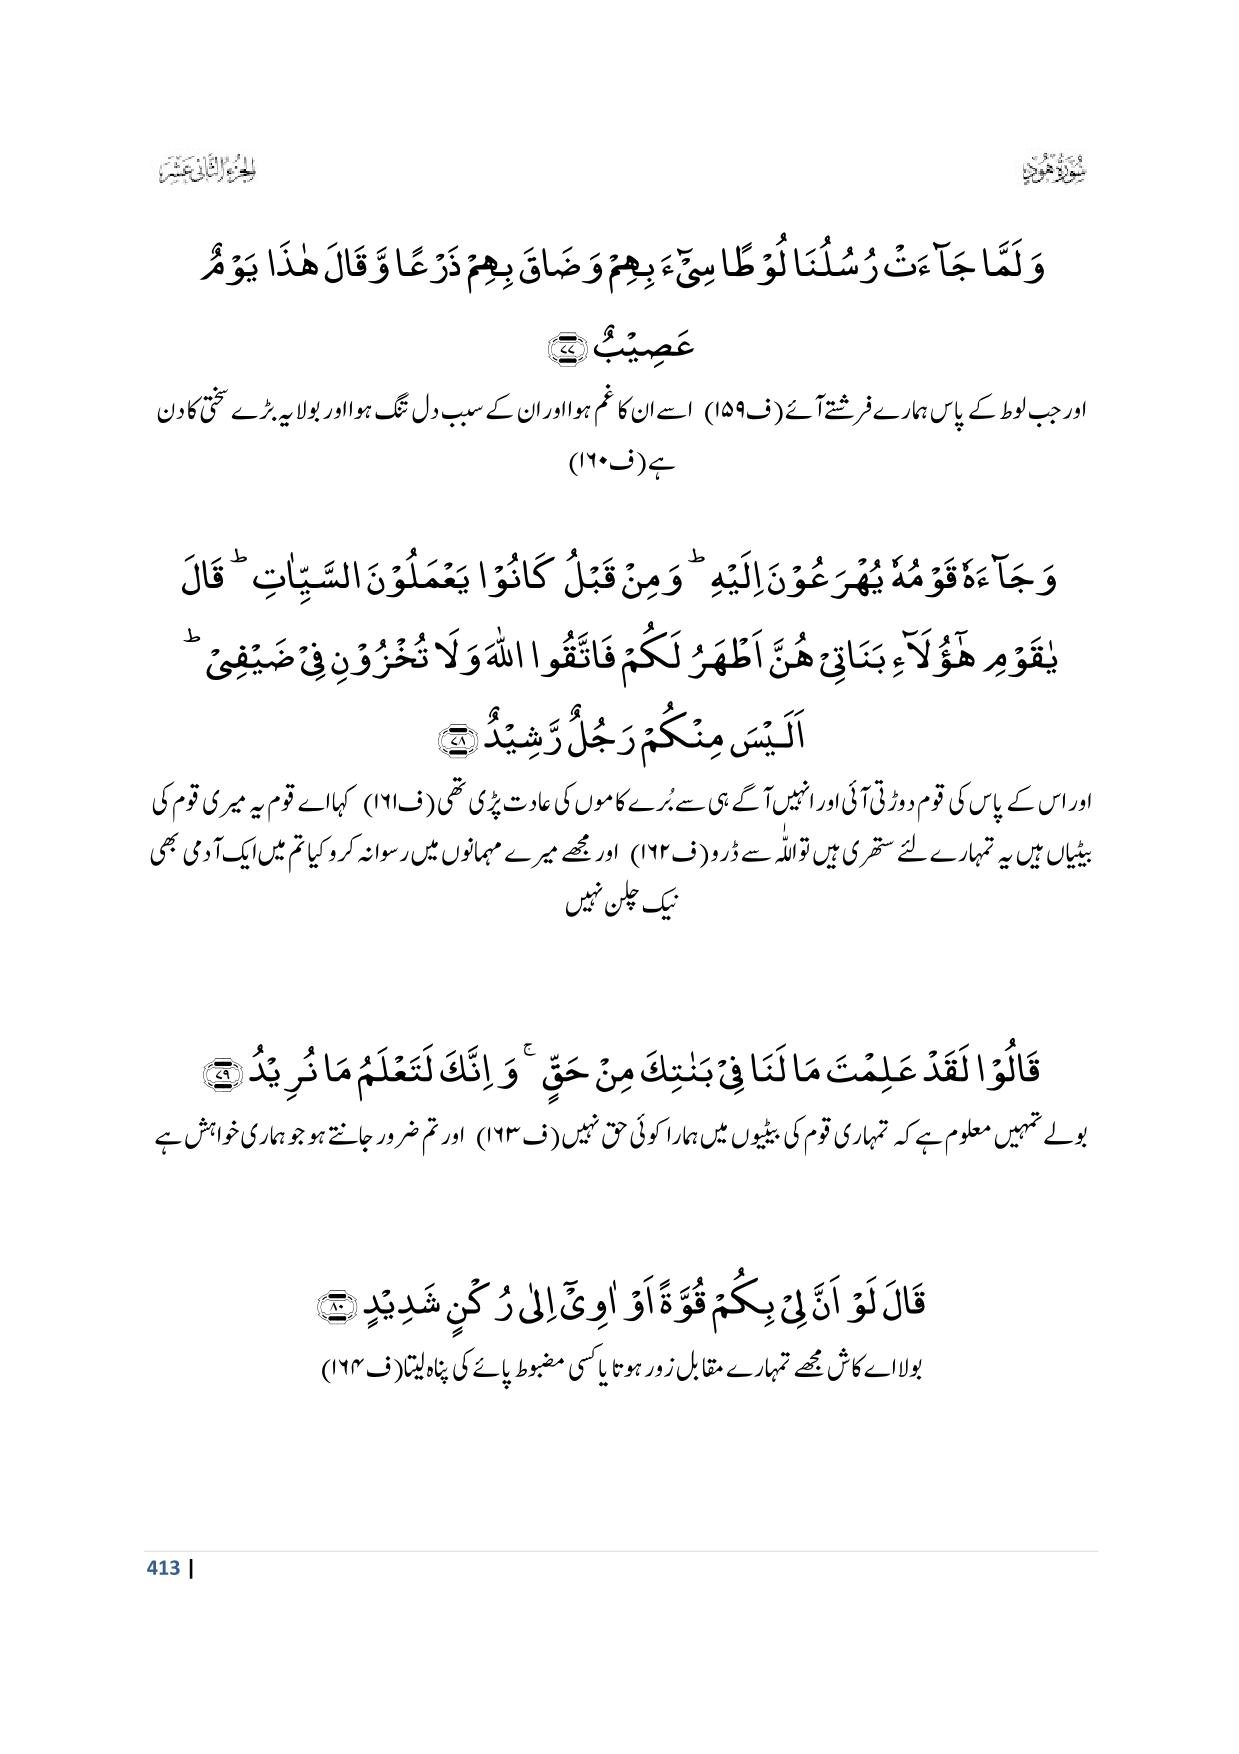 سُوْرَةُ هُوْدٍ
الجزء الثانی عشر
وَ لَمَّا جَآءَتْ رُسُلُنَا لُوْطًا سِیْٓءَ بِهِمْ وَ ضَاقَ بِهِمْ ذَرْعًا وَّ قَالَ هٰذَا یَوْمٌ
عَصِیْبٌ ﴿۷۷﴾
اور جب لوط کے پاس ہمارے فرشتے آئے (ف۱۵۹) اسے ان کا غم ہوا اور ان کے سبب دل تنگ ہوا اور بولا یہ بڑے سختی کا دن
ہے (ف۱۶۰)
وَ جَآءَهٗ قَوْمُهٗ یُهْرَعُوْنَ اِلَیْهِ ؕ وَ مِنْ قَبْلُ كَانُوْا یَعْمَلُوْنَ السَّیِّاٰتِ ؕ قَالَ
یٰقَوْمِ هٰۤؤُلَآءِ بَنَاتِیْ هُنَّ اَطْهَرُ لَكُمْ فَاتَّقُوا اللّٰهَ وَ لَا تُخْزُوْنِ فِیْ ضَیْفِیْ ؕ
اَلَیْسَ مِنْكُمْ رَجُلٌ رَّشِیْدٌ ﴿۷۸﴾
اور اس کے پاس کی قوم دوڑتی آئی اور انہیں آگے ہی سے بُرے کاموں کی عادت پڑی تھی (ف۱۶۱) کہا اے قوم یہ میری قوم کی
بیٹیاں ہیں یہ تمہارے لئے ستھری ہیں تو اللّٰہ سے ڈرو (ف۱۶۲) اور مجھے میرے مہمانوں میں رسوا نہ کرو کیا تم میں ایک آدمی بھی
نیک چلن نہیں
قَالُوْا لَقَدْ عَلِمْتَ مَا لَنَا فِیْ بَنٰتِكَ مِنْ حَقٍّ ۚ وَ اِنَّكَ لَتَعْلَمُ مَا نُرِیْدُ ﴿۷۹﴾
بولے تمہیں معلوم ہے کہ تمہاری قوم کی بیٹیوں میں ہمارا کوئی حق نہیں (ف۱۶۳) اور تم ضرور جانتے ہو جو ہماری خواہش ہے
قَالَ لَوْ اَنَّ لِیْ بِكُمْ قُوَّةً اَوْ اٰوِیْۤ اِلٰی رُكْنٍ شَدِیْدٍ ﴿۸۰﴾
بولا اے کاش مجھے تمہارے مقابل زور ہوتا یا کسی مضبوط پائے کی پناہ لیتا (ف۱۶۴)
413 |